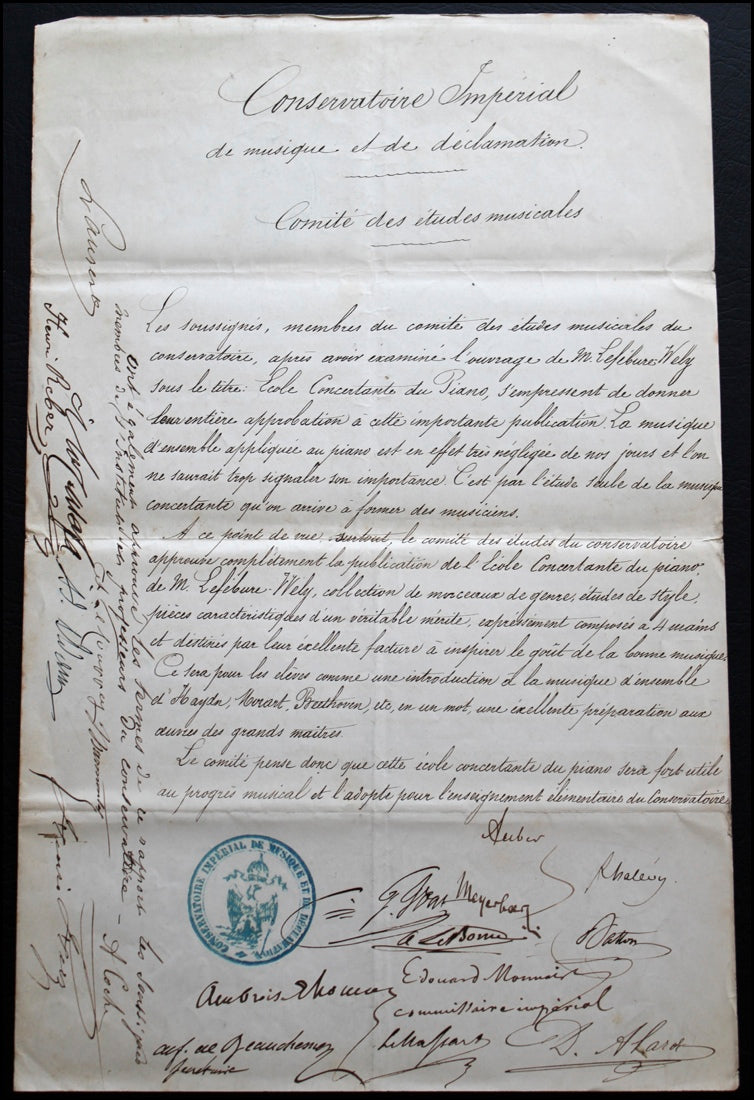 Conservatoire Impérial
de musique et de déclamation.
Comité des études musicales
Les soussignés, membres du comité des études musicales du
conservatoire, après avoir examiné l'ouvrage de M. Lefébure-Wely
sous le titre: Ecole Concertante du Piano, s'empressent de donner
leur entière approbation à cette importante publication. La musique
d'ensemble appliquée au piano est en effet très négligée de nos jours et l'on
ne saurait trop signaler son importance. C'est par l'étude seule de la musique
concertante qu'on arrive à former des musiciens.
A ce point de vue, surtout, le comité des études du conservatoire
approuve complètement la publication de l'Ecole Concertante du piano
de M. Lefébure-Wely, collection de morceaux de genre, études de style,
pièces caractéristiques d'un véritable mérite, expressément composés à 4 mains
et destinés par leur éxellente facture à inspirer le goût de la bonne musique.
Ce sera pour les élèves comme une introduction à la musique d'ensemble
d'Haydn, Mozart, Beethoven, etc, en un mot, une éxellente préparation aux
œuvres des grands maîtres.
Le comité pense donc que cette école concertante du piano sera fort utile
au progrès musical et l'adopte pour l'enseignement élémentaire du Conservatoire.
Auber
F halévy
G. Meyerbeer
A Le Borne
Batton
Ambroise Thomas
Edouard Monnais
commissaire impérial
alf. de Beauchesne
secrétaire
L Massart
D. Alard
CONSERVATOIRE IMPÉRIAL DE MUSIQUE ET DE DÉCLAMATION
Ont également approuvé les termes de ce rapport les soussignés
membres de l'Institut et professeurs du conservatoire -
Henri Reber
A. Adam
F. Le Couppey
Henri Herz